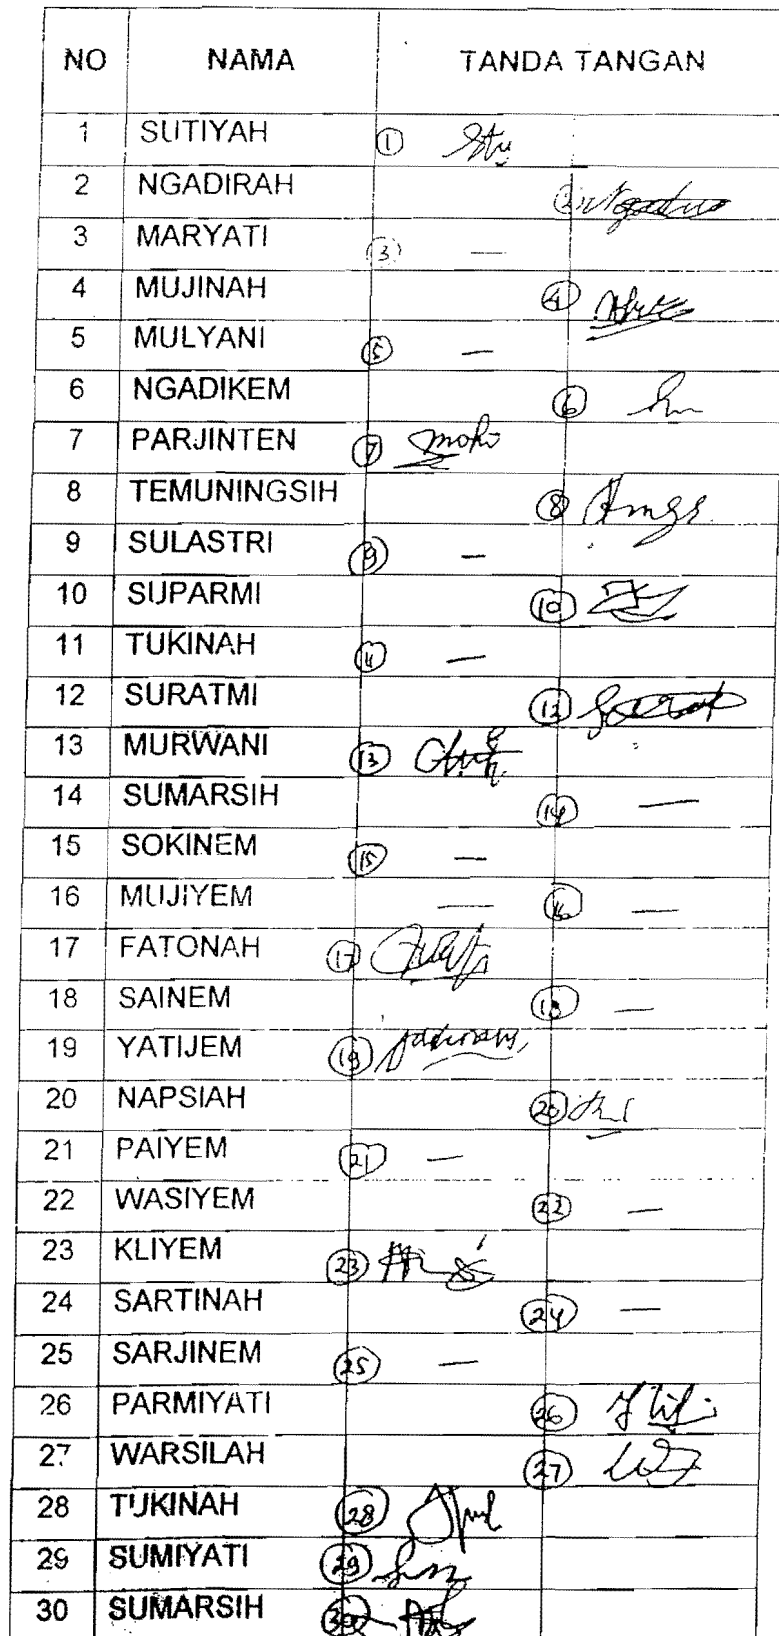 NO NAMA TANDA TANGAN
1 SUTIYAH 1
2 NGADIRAH 2
3 MARYATI 3 —
4 MUJINAH 4
5 MULYANI 5 —
6 NGADIKEM 6
7 PARJINTEN 7
8 TEMUNINGSIH 8
9 SULASTRI 9 —
10 SUPARMI 10
11 TUKINAH 11 —
12 SURATMI 12
13 MURWANI 13
14 SUMARSIH 14 —
15 SOKINEM 15 —
16 MUJIYEM — 16 —
17 FATONAH 17
18 SAINEM 18 —
19 YATIJEM 19
20 NAPSIAH 20
21 PAIYEM 21 —
22 WASIYEM 22 —
23 KLIYEM 23
24 SARTINAH 24 —
25 SARJINEM 25 —
26 PARMIYATI 26
27 WARSILAH 27
28 TUKINAH 28
29 SUMIYATI 29
30 SUMARSIH 30